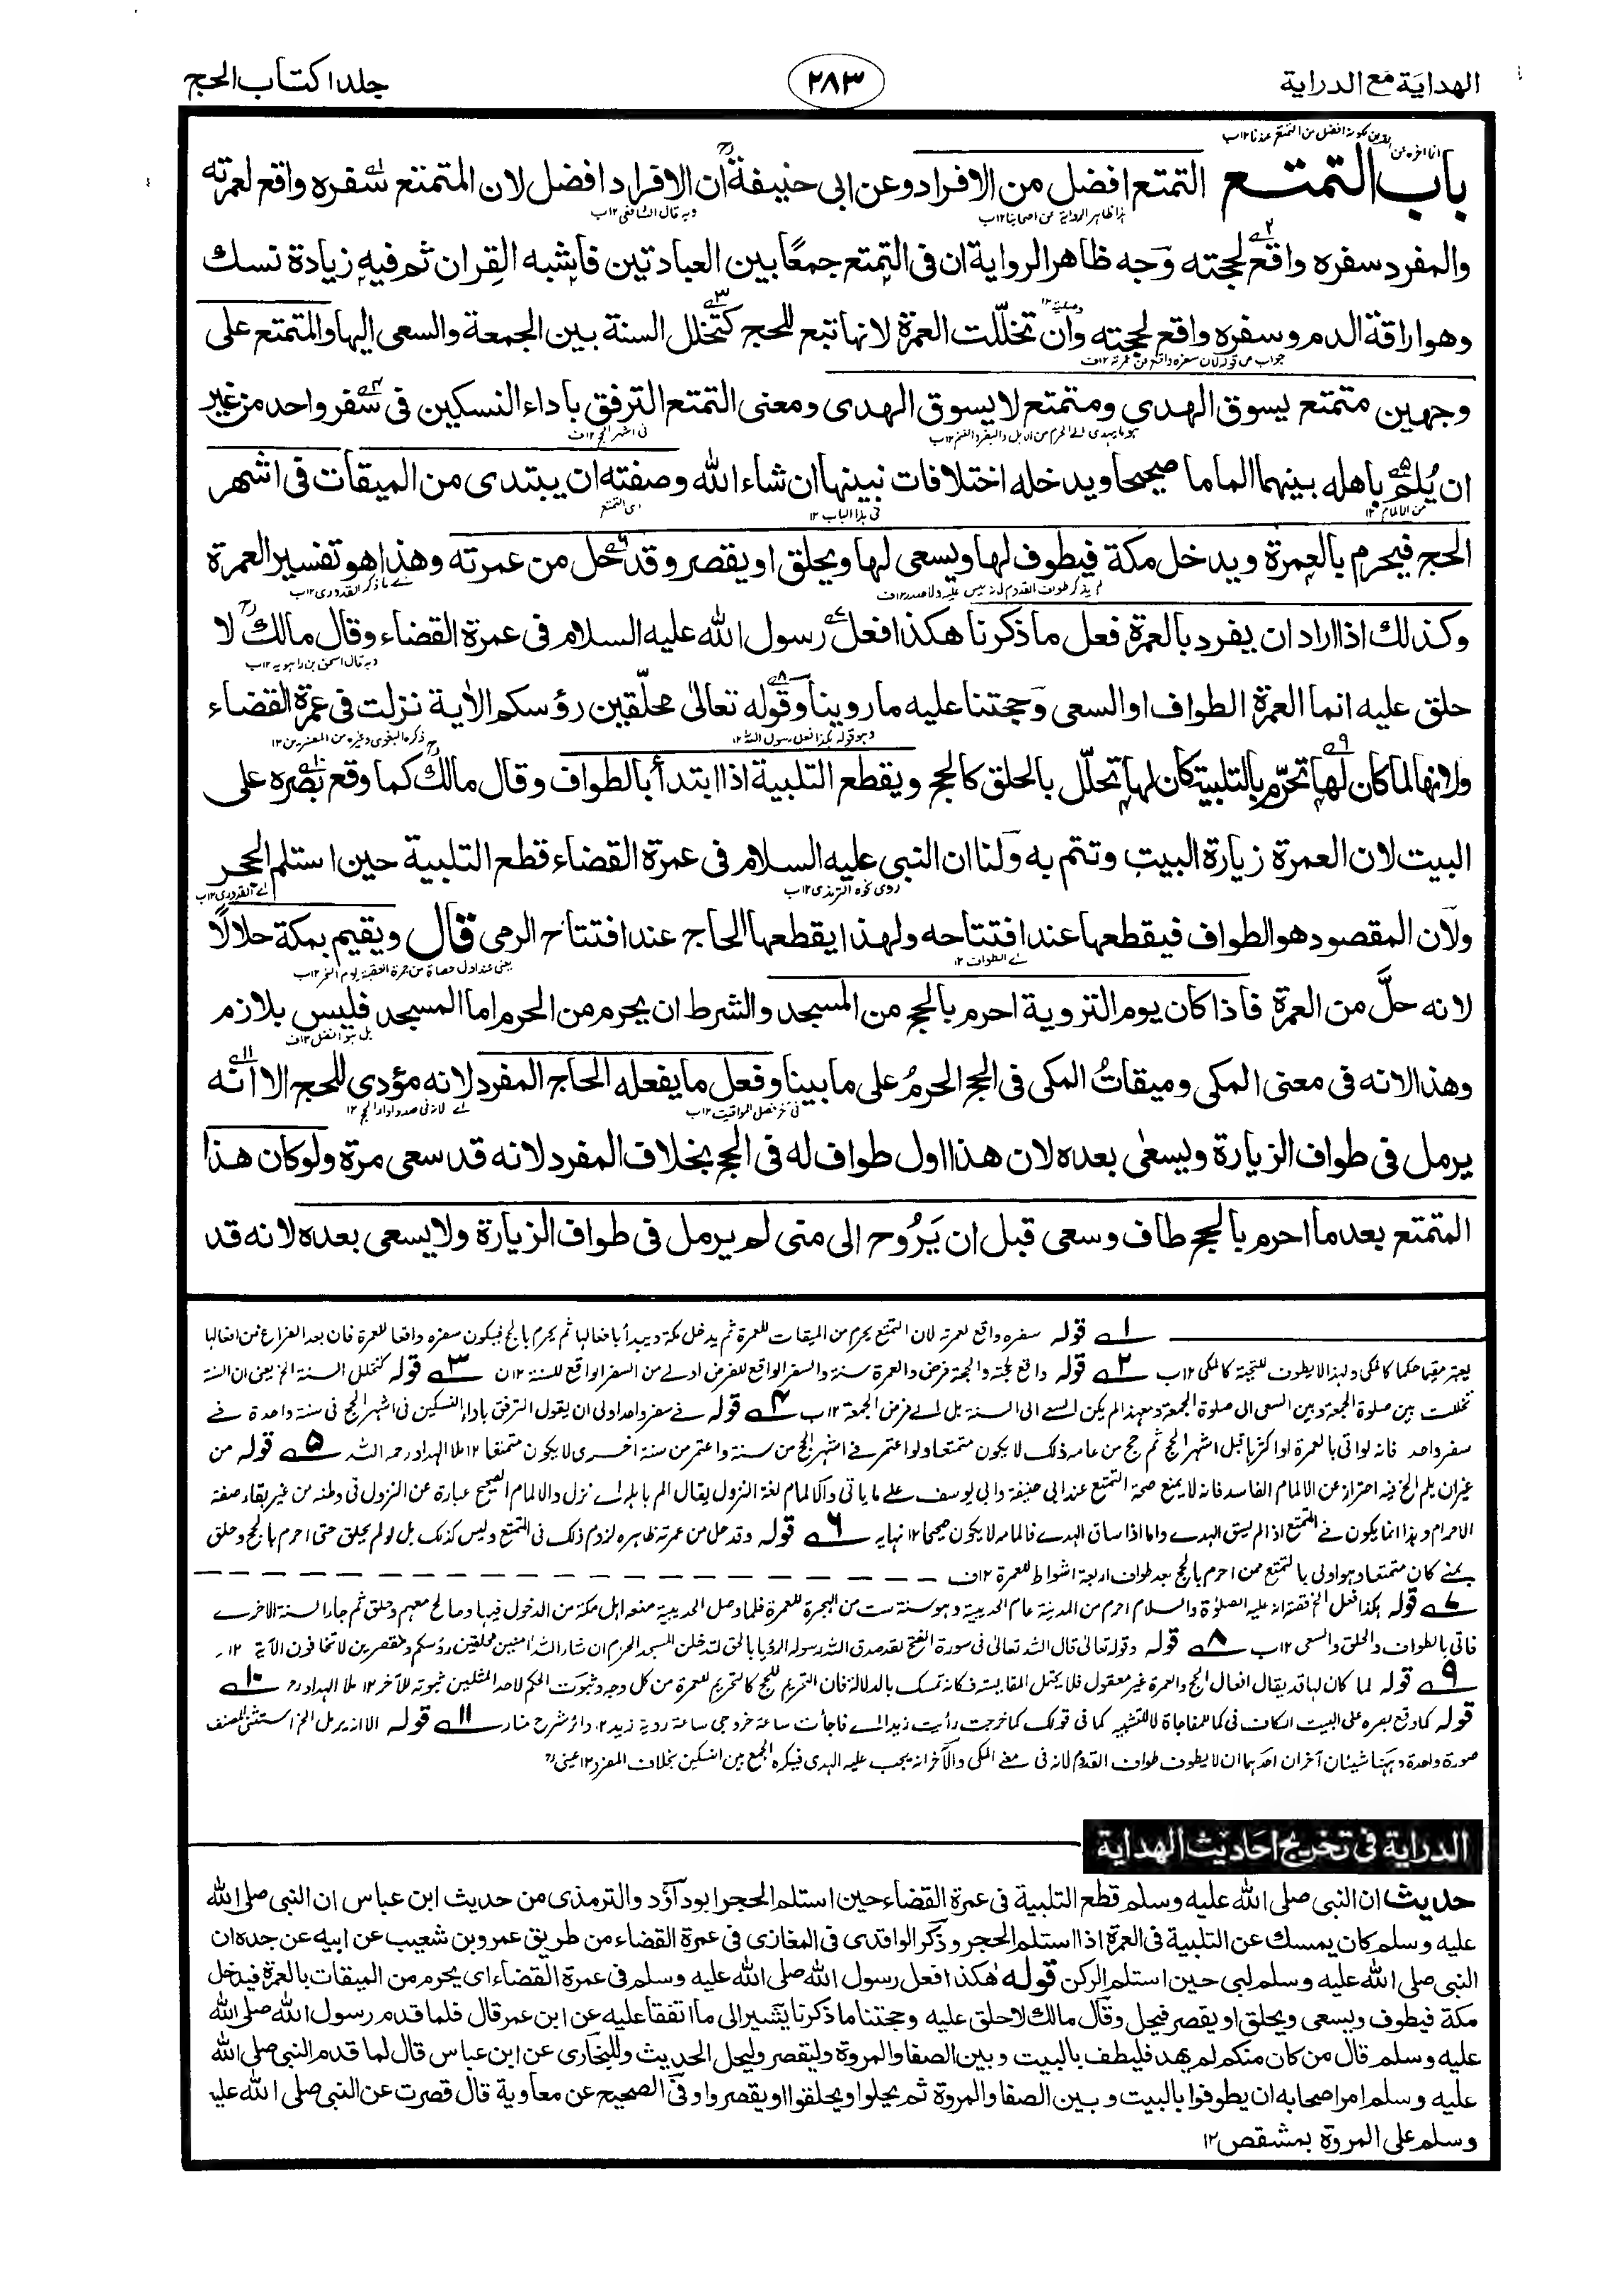 الهداية مع الدراية
٢٨٣
جلد ١ كتاب الحج
باب التمتع التمتع افضل من الافراد وعن ابى حنيفةؒ ان الافراد افضل لان المتمتع سفره واقع لعمرته
والمفرد سفره واقع لحجته وجه ظاهر الرواية ان فى التمتع جمعًا بين العبادتين فاشبه القِران ثم فيه زيادة نسك
وهو اراقة الدم وسفره واقع لحجته وان تخلّلت العمرة لانها تبع للحج كتخلل السنة بين الجمعة والسعى اليها والمتمتع على
وجهين متمتع يسوق الهدى ومتمتع لا يسوق الهدى ومعنى التمتع الترفق باداء النسكين فى سفر واحد من غير
ان يُلمّ باهله بينهما الماما صحيحا ويدخله اختلافات نبينها ان شاء الله وصفته ان يبتدى من الميقات فى اشهر
الحج فيحرم بالعمرة ويدخل مكة فيطوف لها ويسعى لها ويحلق او يقصر وقد حل من عمرته وهذا هو تفسير العمرة
وكذلك اذا اراد ان يفرد بالعمرة فعل ما ذكرنا هكذا فعل رسول الله عليه السلام فى عمرة القضاء وقال مالكؒ لا
حلق عليه انما العمرة الطواف او السعى وحجتنا عليه ما روينا وقوله تعالىٰ محلّقين رؤسكم الاٰية نزلت فى عمرة القضاء
ولانها لما كان لها تحرّم بالتلبية كان لها تحلّل بالحلق كالحج ويقطع التلبية اذا ابتدأ بالطواف وقال مالكؒ كما وقع بصره على
البيت لان العمرة زيارة البيت وتتم به ولنا ان النبى عليه السلام فى عمرة القضاء قطع التلبية حين استلم الحجر
ولان المقصود هو الطواف فيقطعها عند افتتاحه ولهذا يقطعها الحاج عند افتتاح الرمى قال ويقيم بمكة حلالًا
لانه حلَّ من العمرة فاذا كان يوم التروية احرم بالحج من المسجد والشرط ان يحرم من الحرم اما المسجد فليس بلازم
وهذا لانه فى معنى المكى وميقاتُ المكى فى الحج الحرمُ على ما بينا وفعل ما يفعله الحاج المفرد لانه مؤدى للحج الا انه
يرمل فى طواف الزيارة ويسعىٰ بعده لان هذا اول طواف له فى الحج بخلاف المفرد لانه قد سعى مرة ولو كان هذا
المتمتع بعد ما احرم بالحج طاف وسعى قبل ان يَرُوح الى منى لم يرمل فى طواف الزيارة ولا يسعى بعده لانه قد
١ قوله سفره واقع لعمرته لان المتمتع يحرم من الميقات للعمرة ثم يدخل مكة ويبدأ بافعالها ثم يحرم بالحج فيكون سفره واقعا للعمرة فان بعد الفراغ من افعالها
يعتبر مقيما حكما كالمكى ولهذا لا يطوف للتحية كالمكى ١٢ب ٢ قوله واقع لحجته والحجة فرض والعمرة سنة والسفر الواقع للفرض اولى من السفر الواقع للسنة ١٢ن ٣ قوله كتخلل السنة الخ يعنى ان السنة
تخللت بين صلوة الجمعة وبين السعى الى صلوة الجمعة ومع هذا لم يكن السعى الى السنة بل الى فرض الجمعة ١٢ب ٤ قوله فى سفر واحد اولى ان يقول الترفق باداء النسكين فى اشهر الحج فى سنة واحدة فى
سفر واحد فانه لو اتى بالعمرة او اكثرها قبل اشهر الحج ثم حج من عامه ذلك لا يكون متمتعا ولو اعتمر فى اشهر الحج من سنة واعتمر من سنة اخرى لا يكون متمتعا ١٢ ملا الهداد رحمه الله ٥ قوله من
غير ان يلم الخ فيه احتراز عن الالمام الفاسد فانه لا يمنع صحة التمتع عند ابى حنيفة وابى يوسف على ما ياتى والالمام لغة النزول يقال الم باهله اى نزل والالمام الصحيح عبارة عن النزول فى وطنه من غير بقاء صفة
الاحرام وهذا انما يكون فى المتمتع اذا لم يسق الهدى واما اذا ساق الهدى فالمامه لا يكون صحيحا ١٢ نهايه ٦ قوله وقد حل من عمرته ظاهره لزوم ذلك فى التمتع وليس كذلك بل لو لم يحلق حتى احرم بالحج وحلق
بمنى كان متمتعا وهو اولى بالتمتع ممن احرم بالحج بعد طواف اربعة اشواط للعمرة ١٢ف
٧ قوله هكذا فعل الخ قصته انه عليه الصلوٰة والسلام احرم من المدينة عام الحديبية وهو سنة ست من الهجرة للعمرة فلما وصل الحديبية منعه اهل مكة من الدخول فيها وصالح معهم وحلق ثم جاء السنة الاخرى
فاتى بالطواف والحلق والسعى ١٢ب ٨ قوله وقوله تعالى قال الله تعالى فى سورة الفتح لقد صدق الله رسوله الرؤيا بالحق لتدخلن المسجد الحرام ان شاء الله اٰمنين محلقين رؤسكم ومقصرين لا تخافون الآية ١٢
٩ قوله لما كان لها قد يقال افعال الحج والعمرة غير معقول فلا يحتمل المقايسة فكانه تمسك بالدلالة فان التحريم للحج كالتحريم للعمرة من كل وجه وثبوت الحكم لاحد المثلين ثبوته للآخر ١٢ ملا الهداد رح ١٠
قوله كما وقع بصره على البيت الكاف فى كما للمفاجاة لا للتشبيه كما فى قولك كما خرجت رأيت زيدا اى فاجأت ساعة خروجى ساعة روية زيد ١٢ دائر شرح منار ١١ قوله الا انه يرمل الخ استثنى المصنف
صورة واحدة وههنا شيئان آخران احدهما ان لا يطوف طواف القدوم لانه فى معنى المكى والآخر انه يجب عليه الهدى فيكره الجمع بين النسكين بخلاف المفرد ١٢ عينىؒ
الدراية فى تخريج احاديث الهداية
حديث ان النبى صلى الله عليه وسلم قطع التلبية فى عمرة القضاء حين استلم الحجر ابو داؤد والترمذى من حديث ابن عباس ان النبى صلى الله
عليه وسلم كان يمسك عن التلبية فى العمرة اذا استلم الحجر وذكر الواقدى فى المغازى فى عمرة القضاء من طريق عمرو بن شعيب عن ابيه عن جده ان
النبى صلى الله عليه وسلم لبى حين استلم الركن قوله هٰكذا فعل رسول الله صلى الله عليه وسلم فى عمرة القضاء اى يحرم من الميقات بالعمرة فيدخل
مكة فيطوف ويسعى ويحلق او يقصر فيحل وقال مالك لا حلق عليه وحجتنا ما ذكرنا يشير الى ما اتفقا عليه عن ابن عمر قال فلما قدم رسول الله صلى الله
عليه وسلم قال من كان منكم لم يهد فليطف بالبيت وبين الصفا والمروة وليقصر وليحل الحديث وللبخارى عن ابن عباس قال لما قدم النبى صلى الله
عليه وسلم امر اصحابه ان يطوفوا بالبيت وبين الصفا والمروة ثم يحلوا ويحلقوا او يقصروا وفى الصحيح عن معاوية قال قصرت عن النبى صلى الله عليه
وسلم على المروة بمشقص ١٢